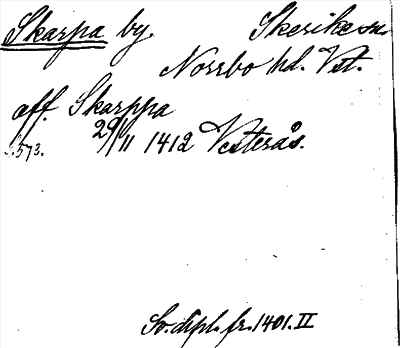 Skarpa by. Skerike sn.
Norrbo hd. Vst.
aff Skarppa
29/11 1412 Vesterås.
s. 573.
Sv. dipl. fr. 1401. II